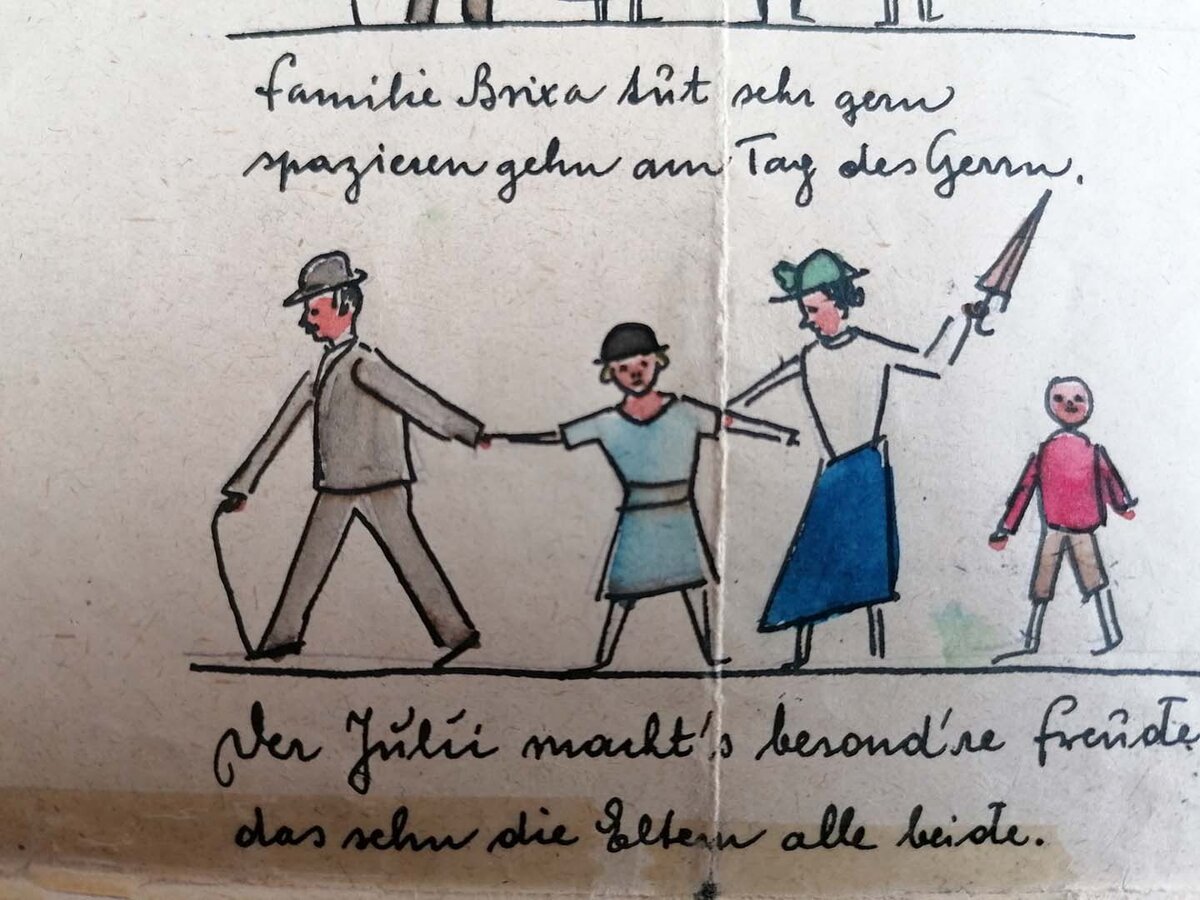 Familie Brixa tut sehr gern
spazieren gehn am Tag des Herrn.
Der Julii macht's besond're Freude,
das sehn die Eltern alle beide.